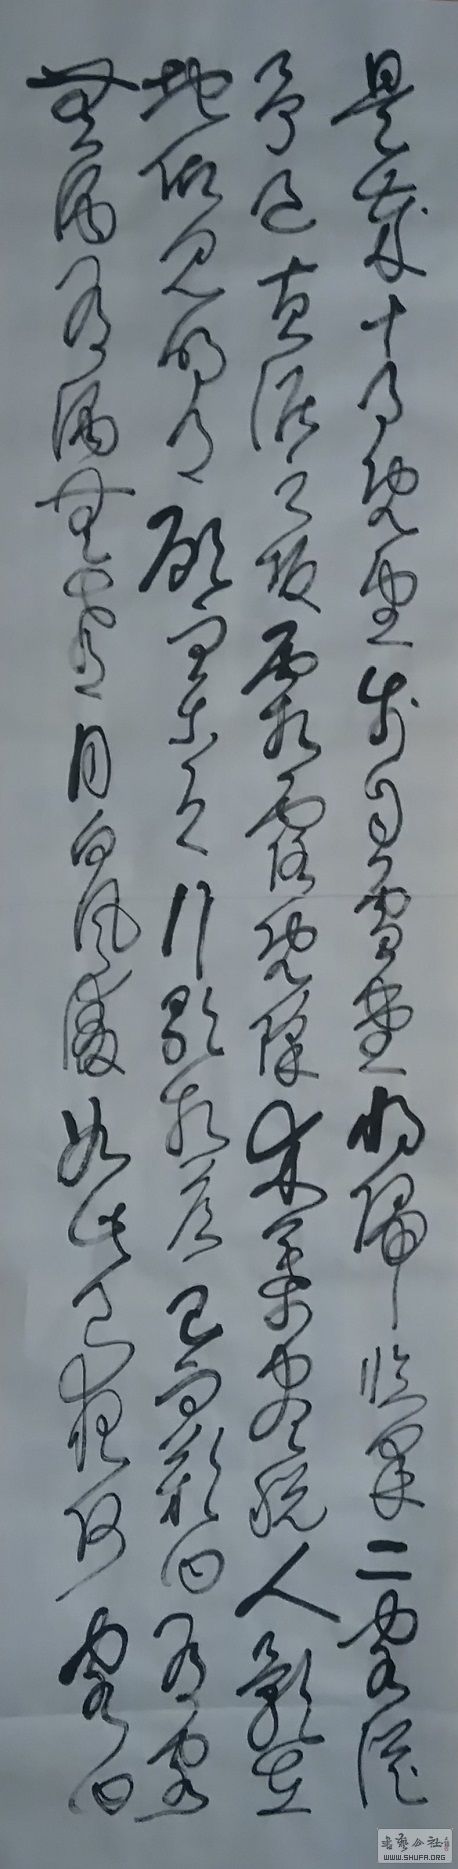 是歲十月既望步自雪堂將歸臨皋二客從
予過黃泥之坂霜露既降木葉盡脫人影在
地仰見明月顧而樂之行歌相答已而歎曰有客
無酒有酒無肴月白風清如此良夜何客曰
書藝公社
WWW.SHUFA.ORG